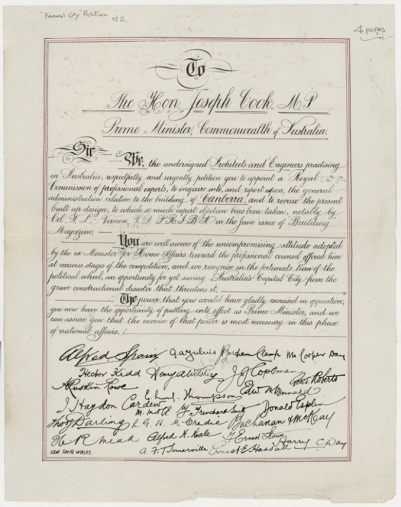 "Federal City" Petition
N2
4 pages
To
The Hon. Joseph Cook, M.P.
Prime Minister, Commonwealth of Australia.
Sir We, the undersigned Architects and Engineers practising
in Australia, respectfully and urgently petition you to appoint a Royal
Commission of professional experts, to enquire into, and report upon, the general
administration relative to the building of "Canberra", and to revise the present
built on design, to which so much expert objection has been taken, notably by
Col. Vernon, in the June issue of Building
Magazine;
You are well aware of the uncompromising attitude adopted
by the ex-Minister for Home Affairs toward the professional counsel offered him
at various stages of the competition, and we recognise in the fortunate turn of the
political wheel, an opportunity for yet saving Australia's Capital City from the
grave constructional disaster that threatens it;
The power, that you would have gladly exercised in opposition,
you now have the opportunity of putting into effect as Prime Minister, and we
can assure you that the exercise of that power is most necessary in this phase
of national affairs.
Alfred Burcham Clamp Cooper Day
Hector Kidd Henry J. Copeman
Rowe Thompson Roberts
J. Haydon Cardew Donald Esplin
Thos Darling Buchanan & McKay
R Mead Alfred Neale Ernest Rowe Harry C. Day
A. F. Somerville Ernest E. Hassall
NEW SOUTH WALES